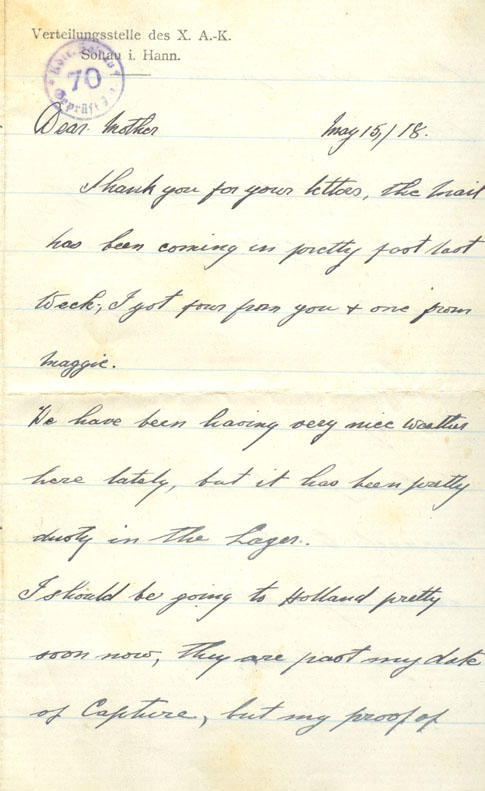 Verteilungsstelle des X. A.-K.
Soltau i. Hann.
70
Geprüft
Dear Mother May 15/18.
Thank you for your letters, the mail
has been coming in pretty fast last
week, I got four from you + one from
Maggie.
We have been having very nice weather
here lately, but it has been pretty
dusty in the Lager.
I should be going to Holland pretty
soon now, they are past my date
of Capture, but my proof of